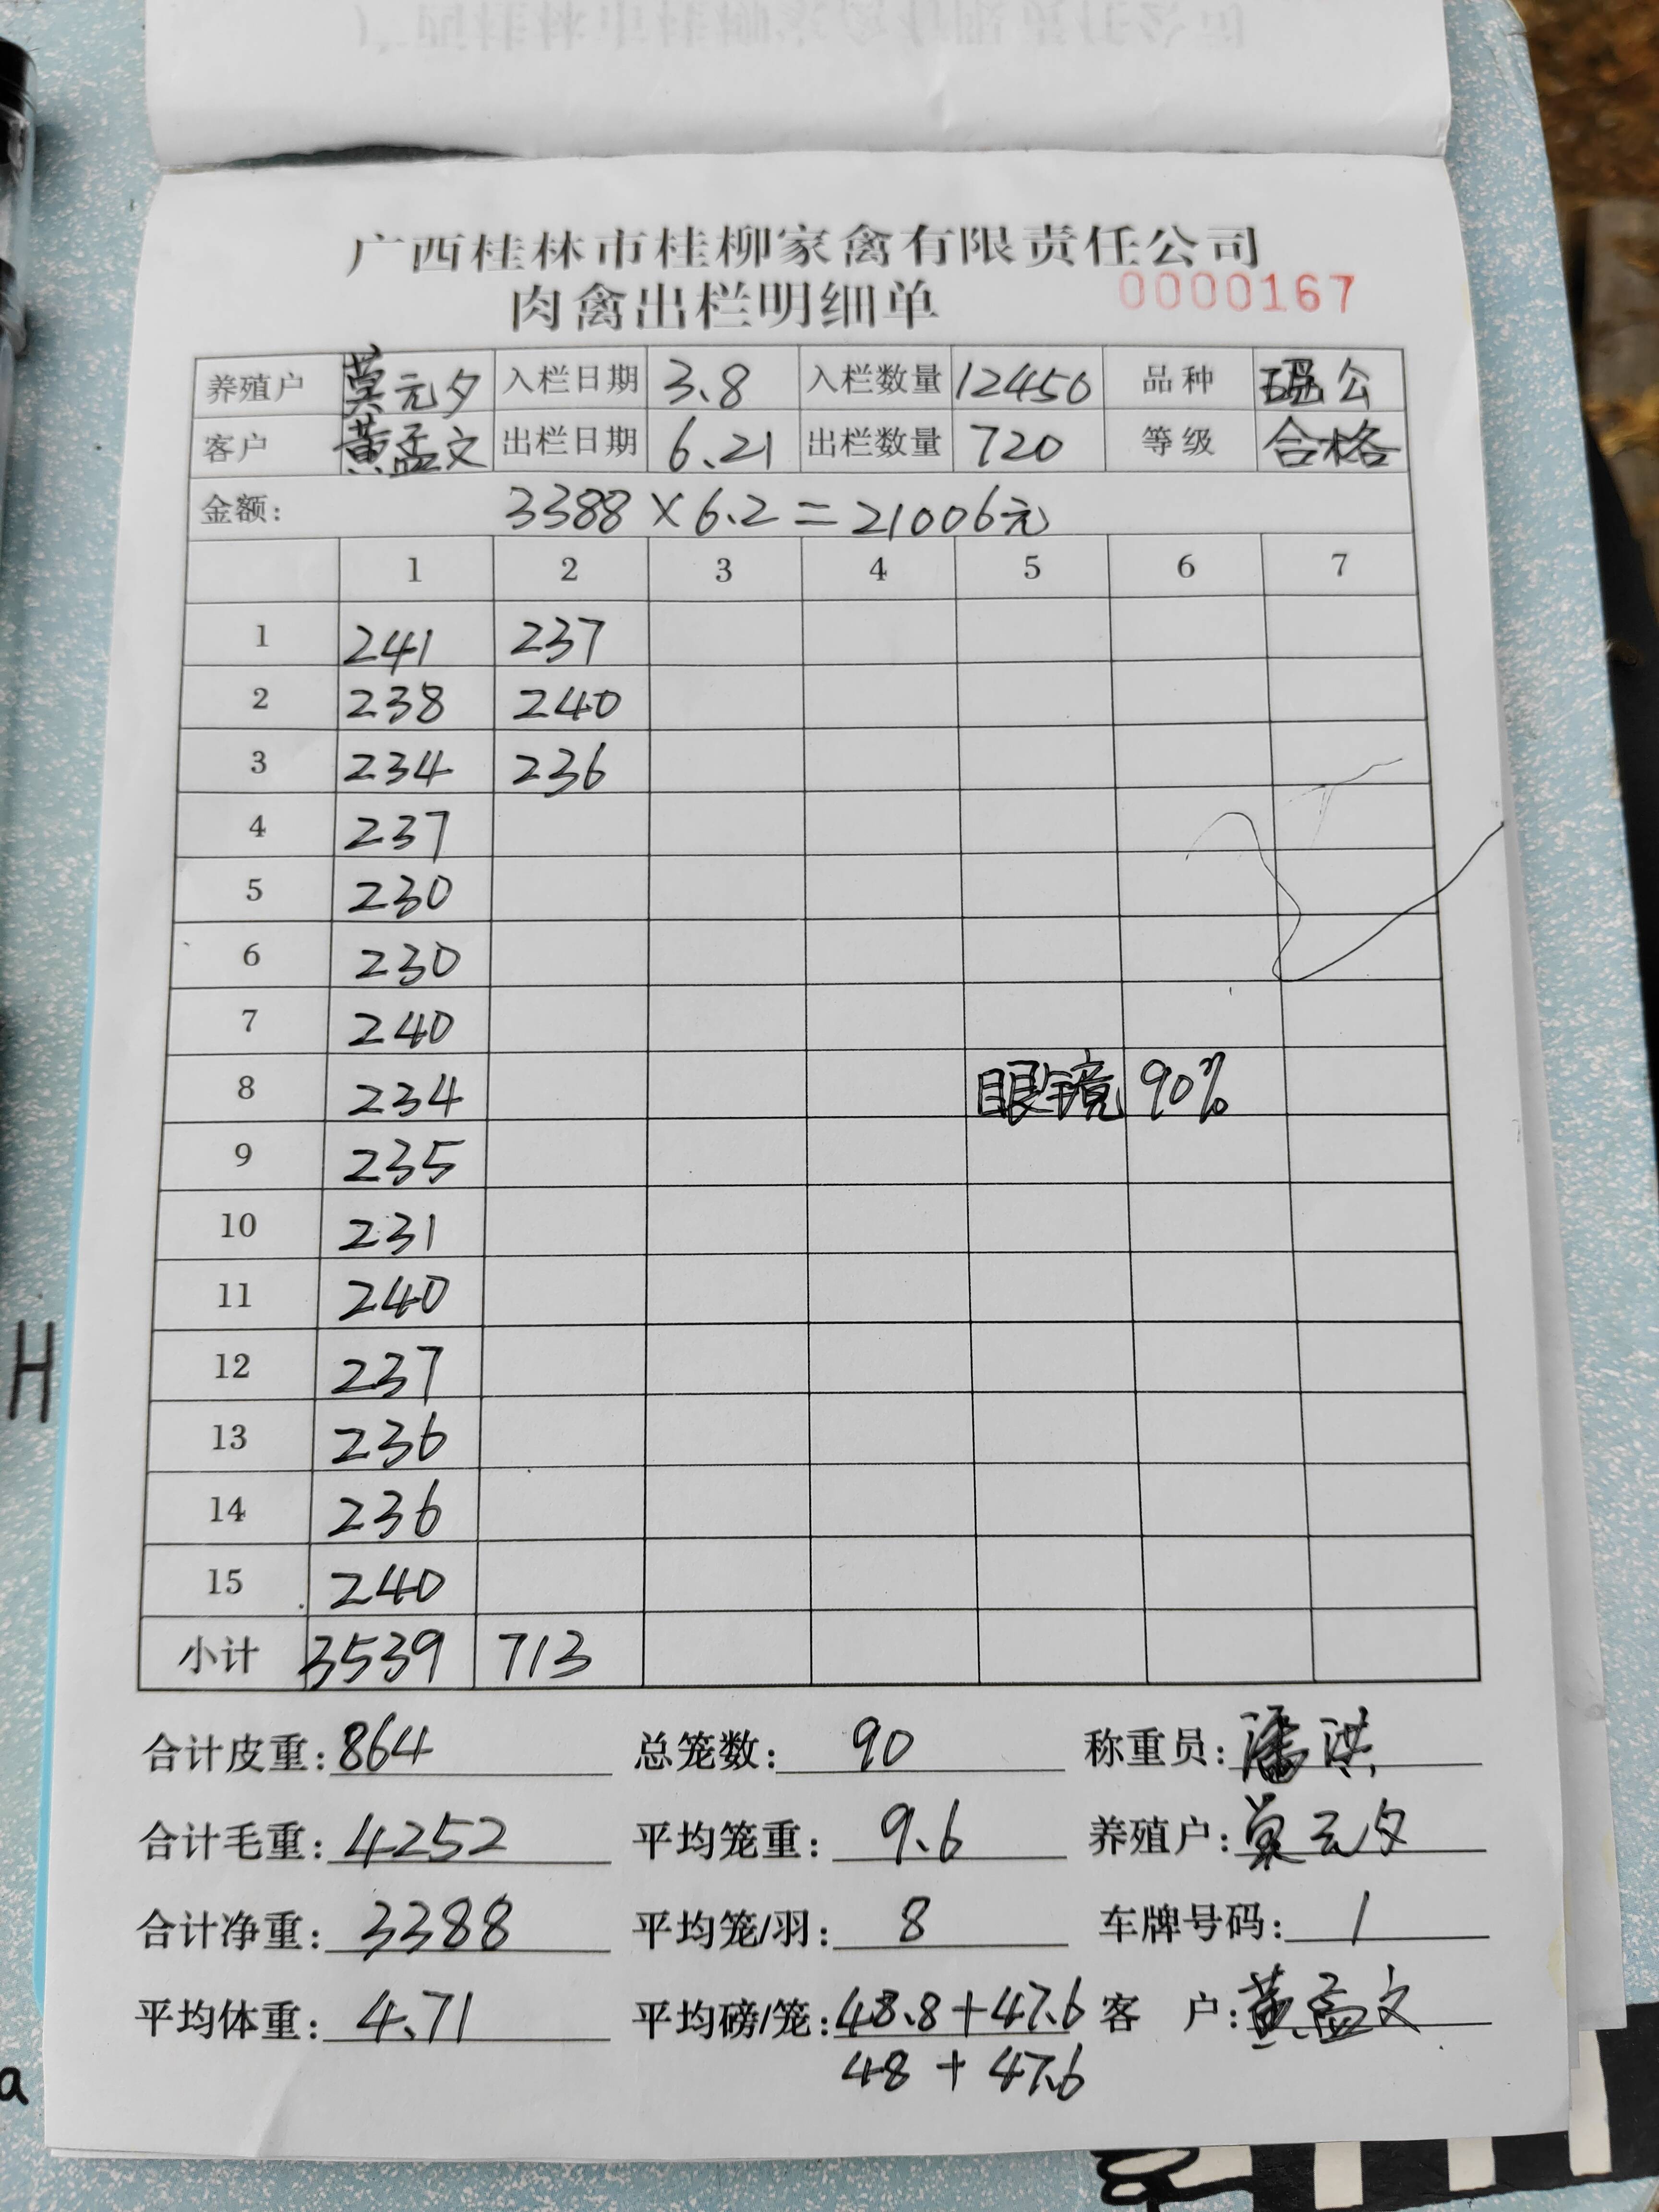 广西桂林市桂柳家禽有限责任公司
肉禽出栏明细单 0000167
养殖户 莫元夕 入栏日期 3.8 入栏数量 12450 品种 公
客户 黄孟文 出栏日期 6.21 出栏数量 720 等级 合格
金额: 3388×6.2=21006元
1 2 3 4 5 6 7
1 241 237
2 238 240
3 234 236
4 237
5 230
6 230
7 240
8 234 眼镜 90%
9 235
10 231
11 240
12 237
13 236
14 236
15 240
小计 3539 713
合计皮重:864 总笼数: 90 称重员:潘洪
合计毛重:4252 平均笼重: 9.6 养殖户:莫元夕
合计净重:3388 平均笼/羽: 8 车牌号码: 1
平均体重: 4.71 平均磅/笼:48.8+47.6 客 户:黄孟文
48+47.6
H
a